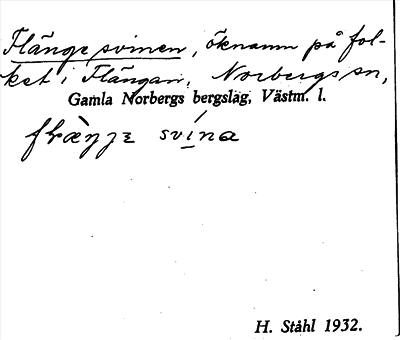 Flängesvinen, öknamn på fol-
ket i Flängan, Norbergs sn,
Gamla Norbergs bergslag, Västm. l.
svina
H. Ståhl 1932.